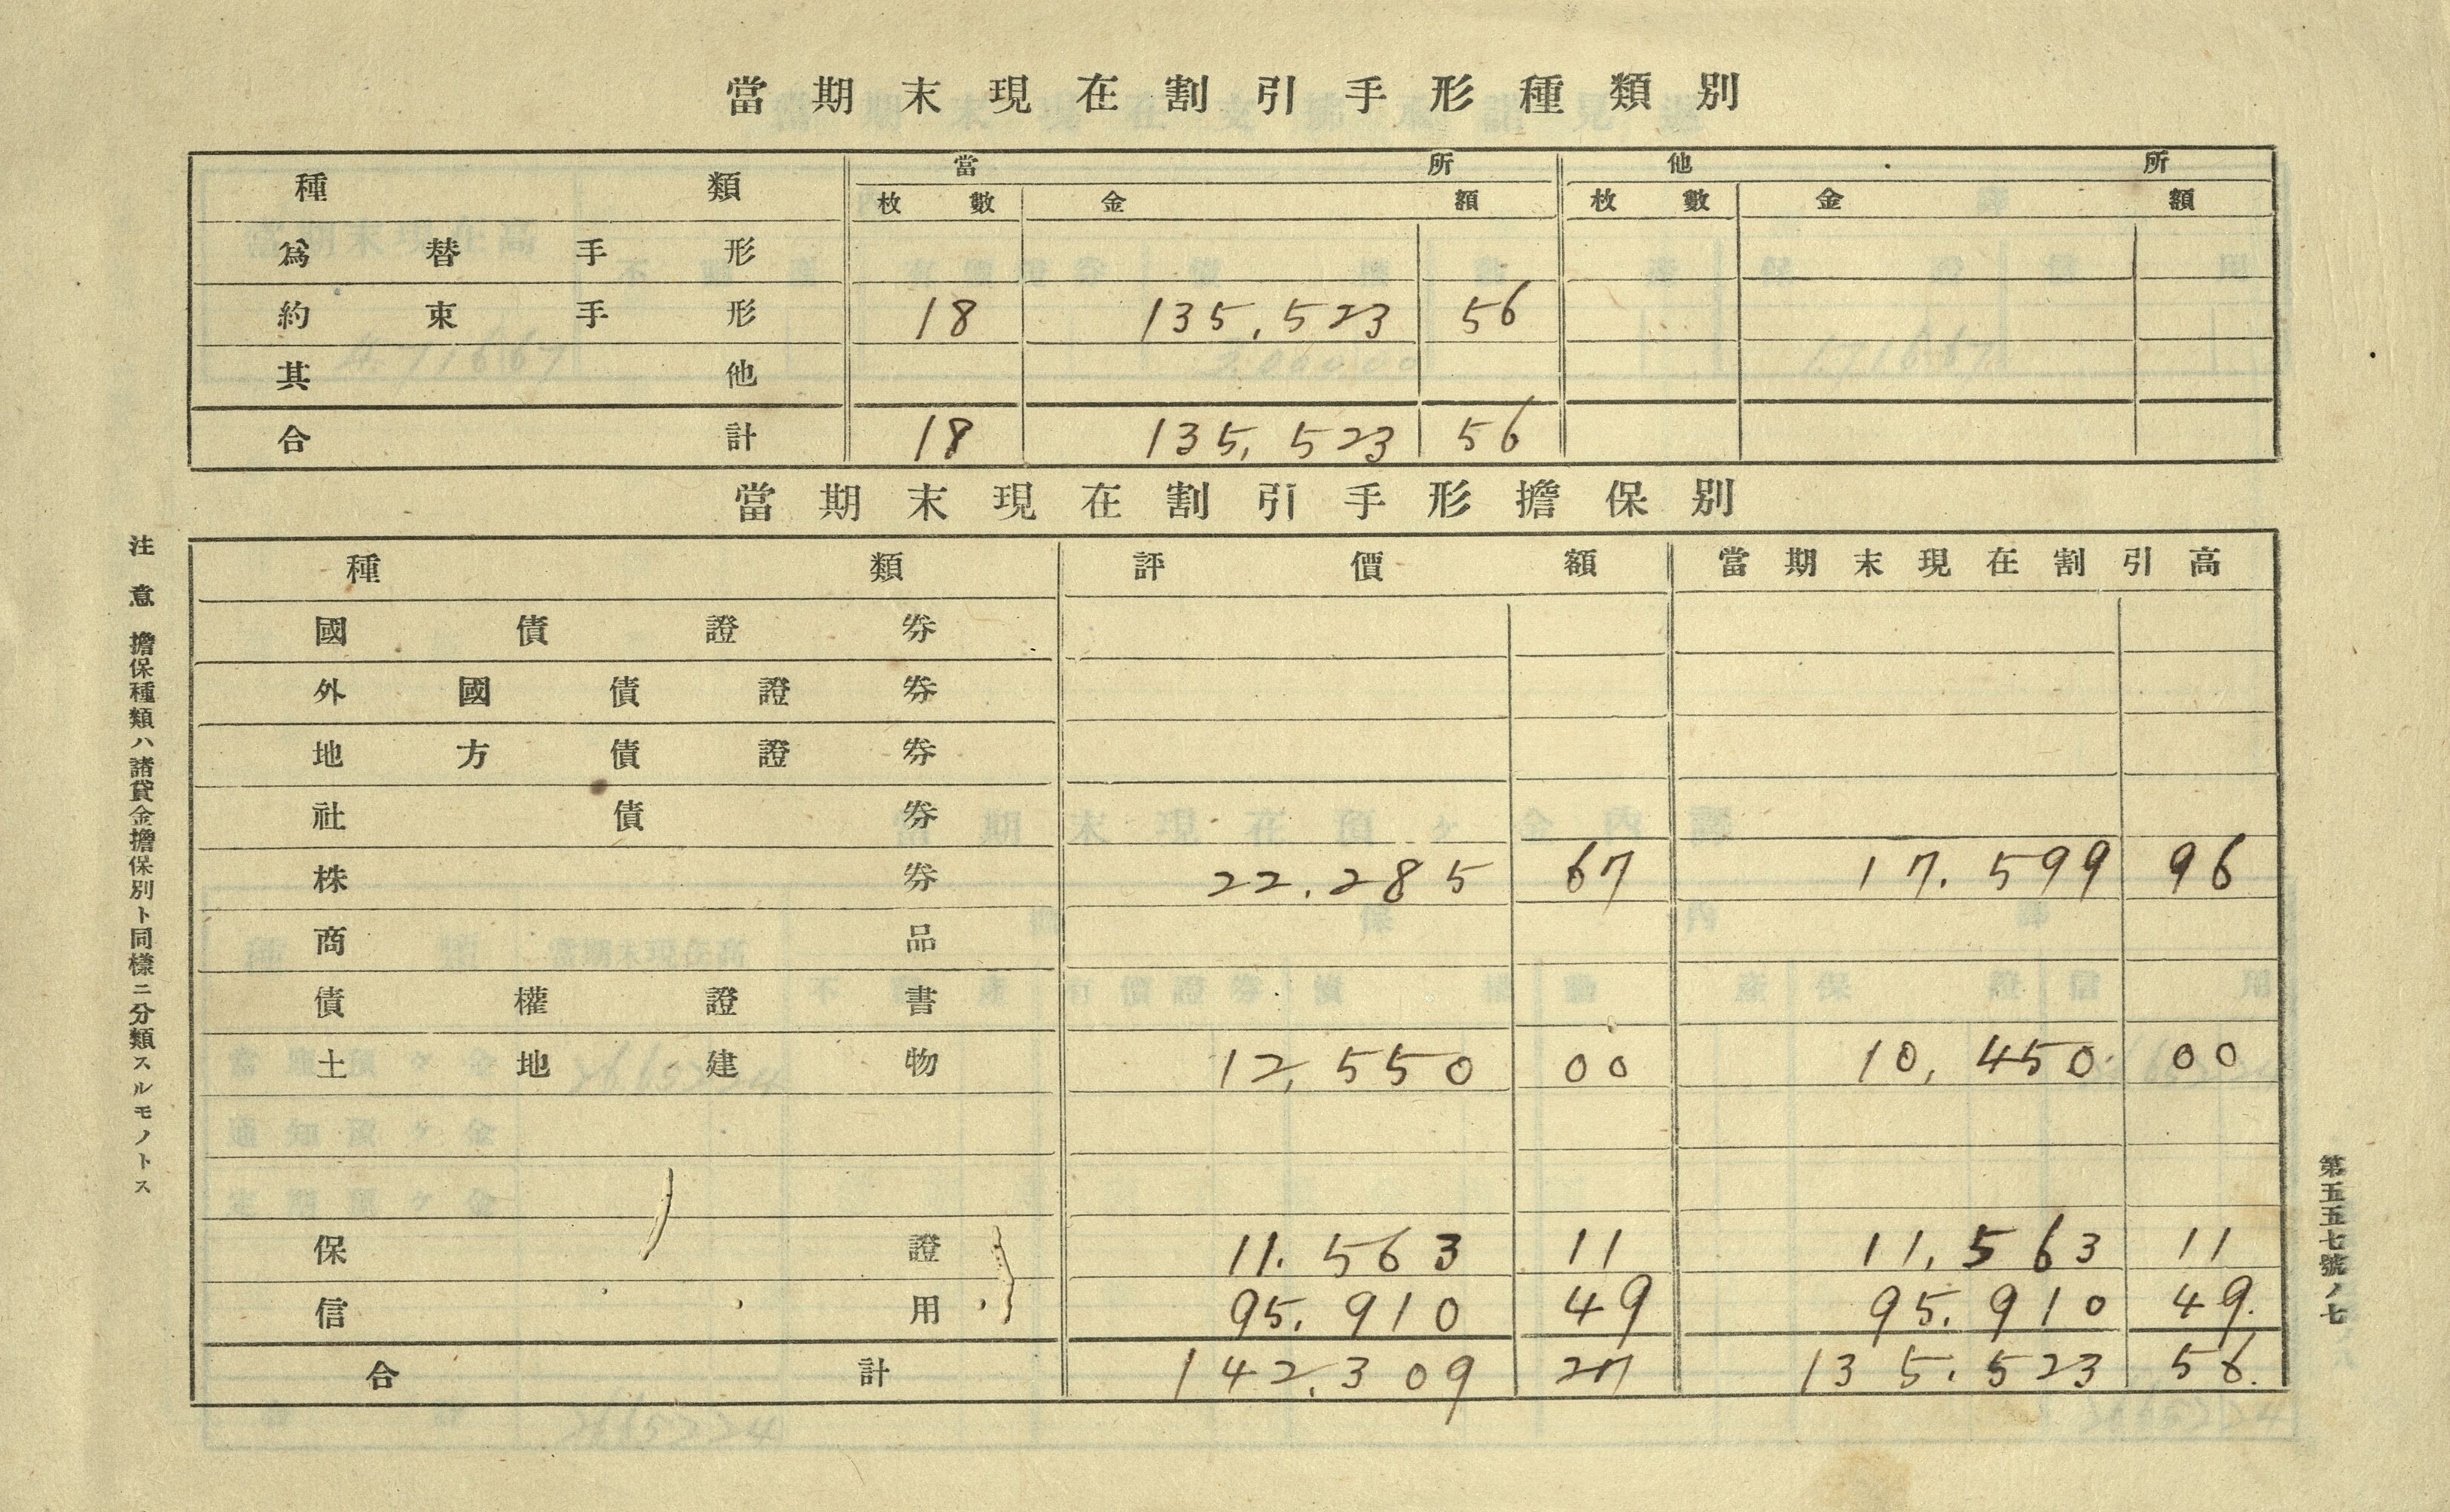 當期末現在割引手形種類別
種類 當所 他所
枚數 金額 枚數 金額
爲替手形
約束手形 18 135,523 56
其他
合計 18 135,523 56
當期末現在割引手形擔保別
種類 評價額 當期末現在割引高
國債證券
外國債證券
地方債證券
社債券
株券 22.285 67 17.599 96
商品
債權證書
土地建物 12,550 00 10,450 00
保證 11.563 11 11,563 11
信用 95.910 49 95.910 49.
合計 142.309 27 135.523 56.
注意 擔保種類ハ諸貸金擔保別ト同樣ニ分類スルモノトス
第五五七號ノ七